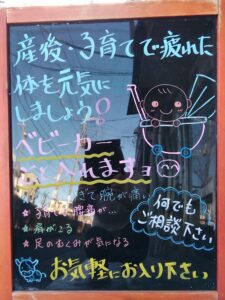 産後・子育てで疲れた
体を元気に
しましょう!
ベビーカー
入れますョ
て腕が痛い
★ 腰痛が…
★ 肩がこる
★ 足のむくみが気になる
何でも
ご相談下さい
お気軽にお入り下さい